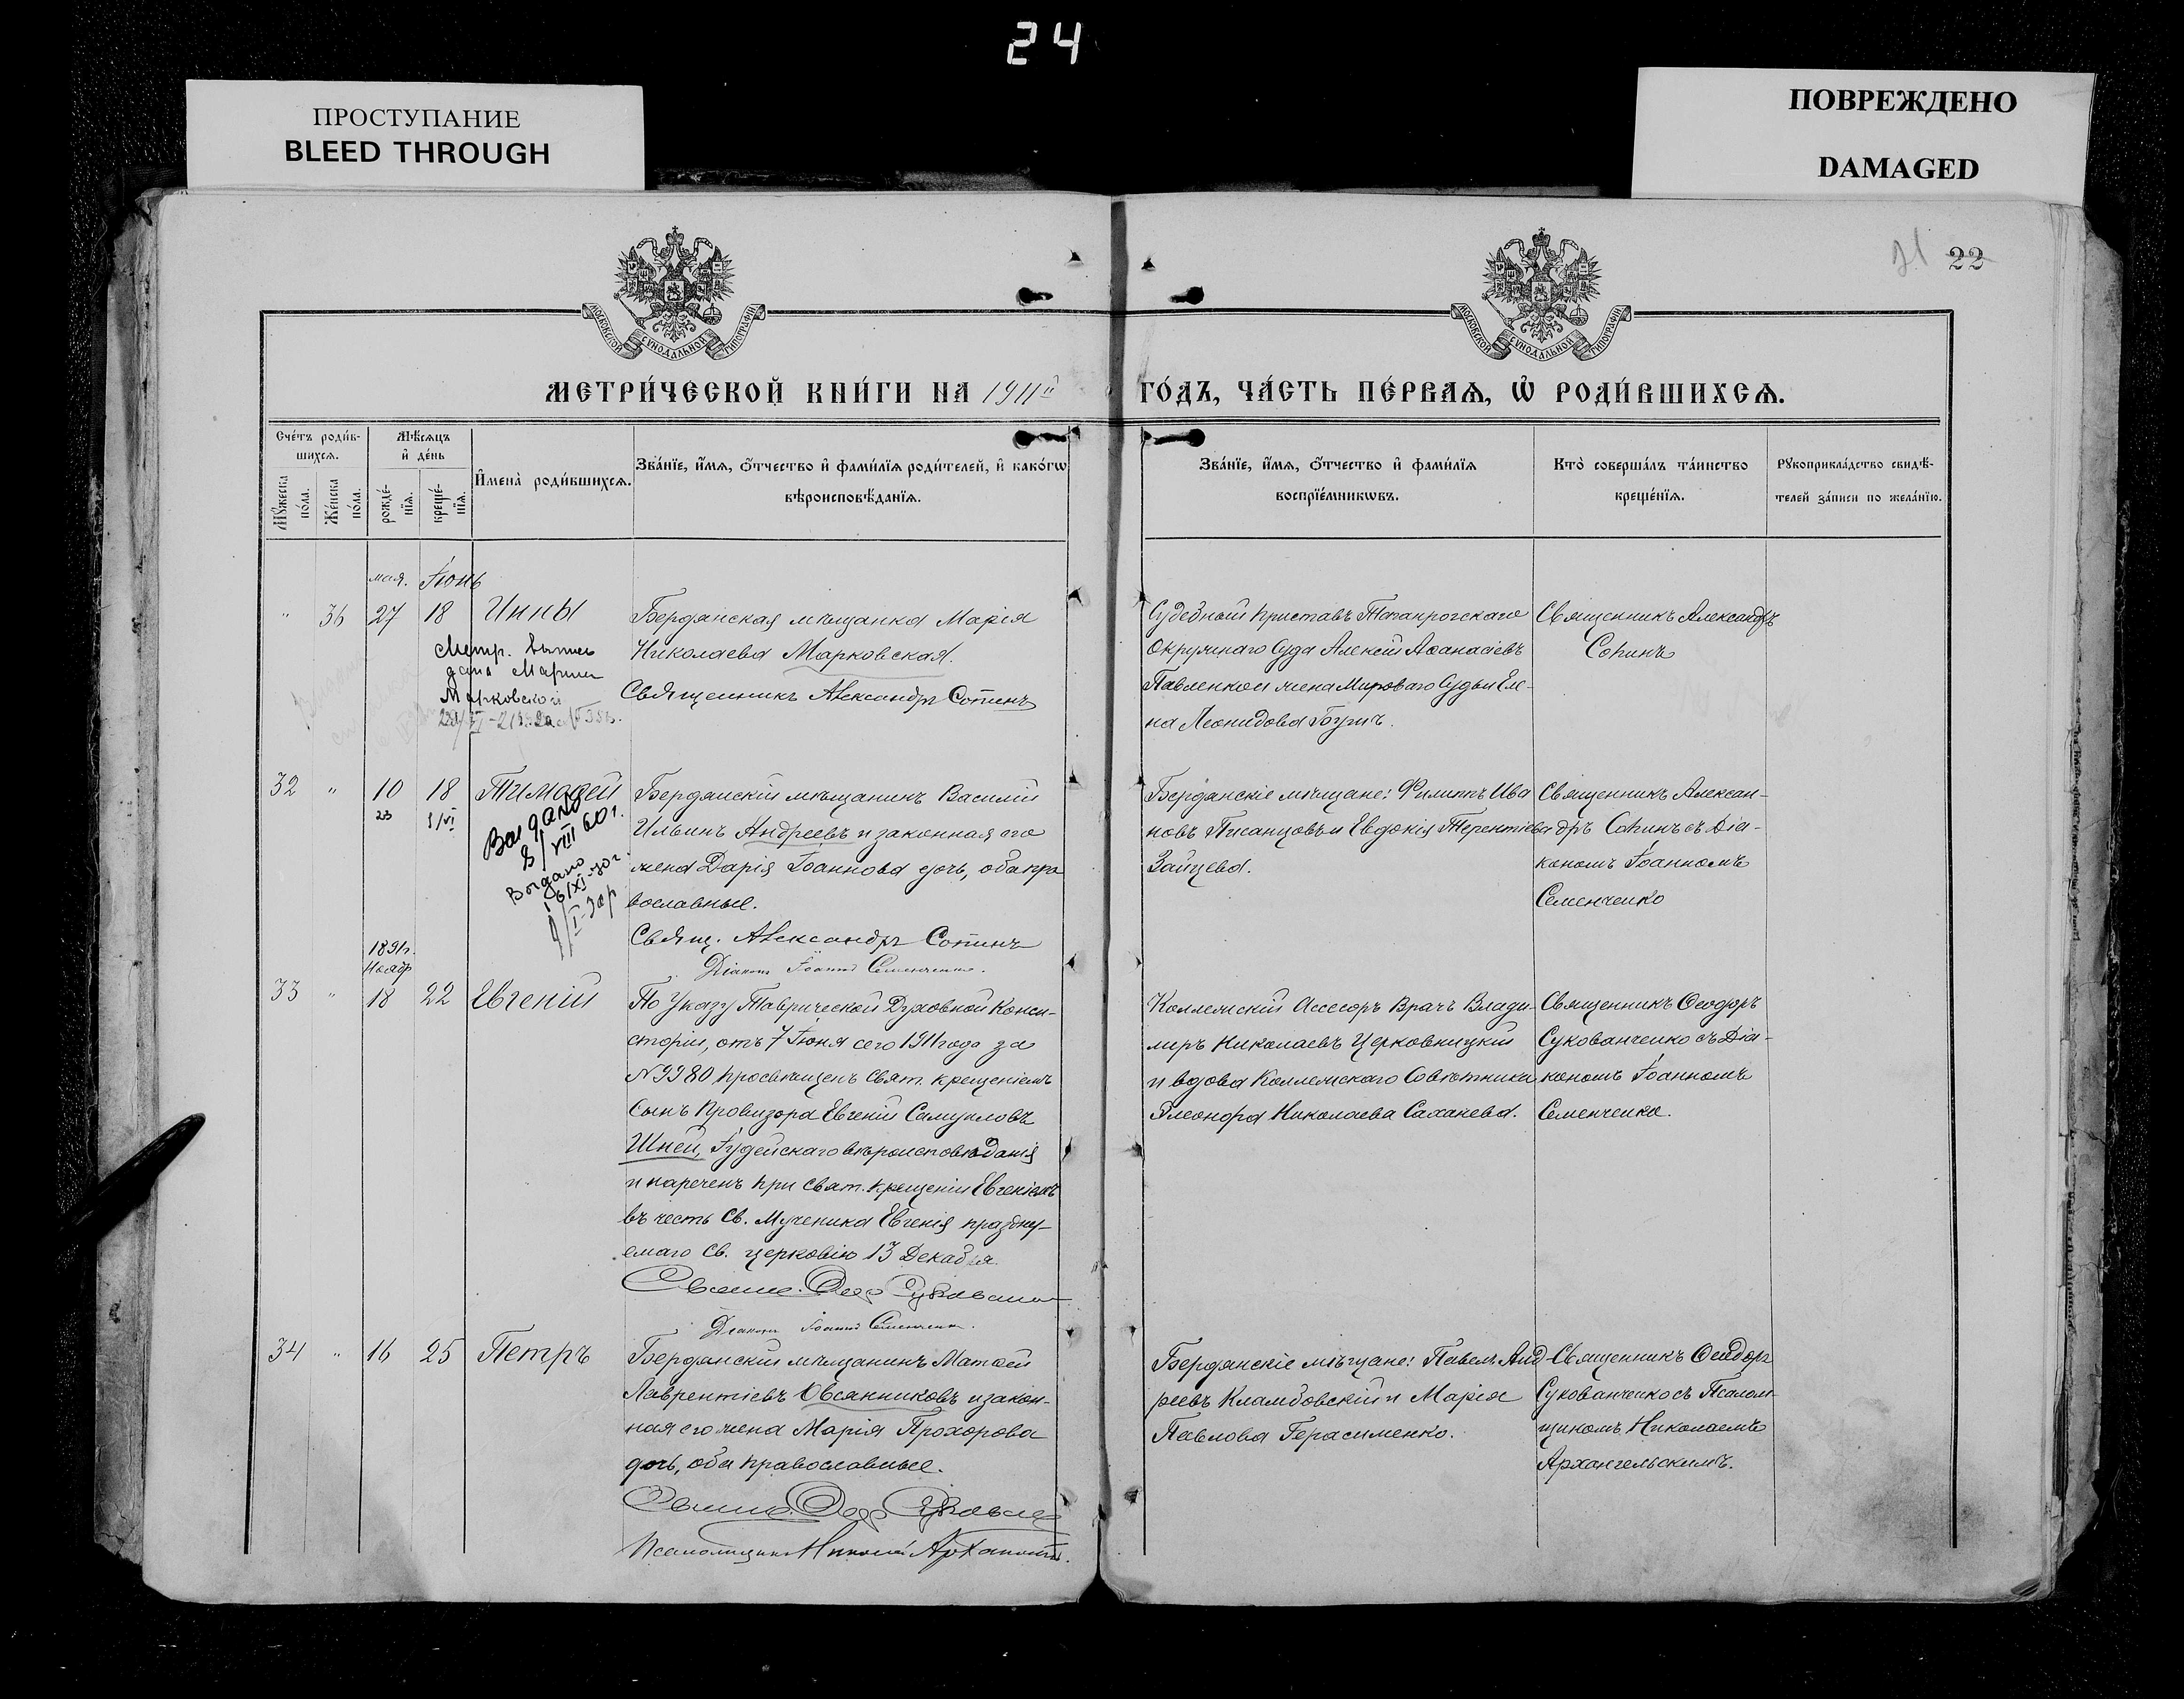 24
ПРОСТУПАНИЕ
BLEED THROUGH
ПОВРЕЖДЕНО
DAMAGED
22
МОСКОВСКОЙ СѴНОДАЛЬНОЙ ТИПОГРАФІИ
МОСКОВСКОЙ СѴНОДАЛЬНОЙ ТИПОГРАФІИ
МЕТРИ́ЧЕСКОЙ КНИ́ГИ НА 1911й ГО́ДЪ, ЧА́СТЬ ПЕ́РВАѦ, Ѡ РОДИ́ВШИХСѦ.
Сче́тъ роди́в-
шихсѧ.
Мѣ́сѧцъ
и҆ де́нь
Мꙋ́жеска
по́ла.
Же́нска
по́ла.
рожде́-
нїѧ.
креще́-
нїѧ.
И҆мена̀ роди́вшихсѧ.
Зва́нїе, и҆́мѧ, о҆́тчество и҆ фами́лїѧ роди́телей, и҆ како́гѡ
вѣроисповѣ́данїѧ.
Зва́нїе, и҆́мѧ, о҆́тчество и҆ фами́лїѧ
воспрїе́мникѡвъ.
Кто̀ соверша́лъ та́инство
креще́нїѧ.
Рꙋкоприкла́дство свидѣ́-
телей за́писи по жела́нїю.
мая. Іюнь
" 36 27 18 Инны
Бердянская мѣщанка Марія
Николаева Марковская.
Священникъ Александръ Сопинъ
Метр. выпись
дана Марии
Марковской
Судебный приставъ Таганрогскаго
Окружнаго Суда Алексѣй Аѳанасіевъ
Павленко и жена Мироваго Судьи Еле-
на Леонидова
Священникъ Александръ
Сопинъ
32 " 10 18 Тимоѳей
23 5/VI
Выдано
8/VIII 60 г.
Выдано
Бердянскій мѣщанинъ Василій
Ильинъ Андреевъ и законная его
жена Дарія Іоаннова дочь, оба пра
вославные.
Свящ. Александръ Сопинъ
Діаконъ Іоаннъ Семенченко.
Бердянскіе мѣщане: Филиппъ Ива
новъ Писанцовъ и Евдокія Терентіева
Зайцева.
Священникъ Алексан-
дръ Сопинъ съ Діа-
кономъ Іоанномъ
Семенченко
1891г.
Нояб
33 " 18 22 Евгеній
По Указу Таврической Духовной Конси-
сторіи, отъ 7 Іюня сего 1911 года за
№ 9980 просвѣщенъ Свят. крещеніемъ
Сынъ Провизора Евгеній Самуиловъ
Шней, Іудейскаго вѣроисповѣданія
и нареченъ при Свят. крещеніи Евгеніемъ
въ честь Св. Мученика Евгенія праздну-
емаго Св. церковію 13 Декабря.
Діаконъ Іоаннъ Семенченко.
Коллежскій Ассесоръ Врачъ Влади-
миръ Николаевъ Церковницкій
и вдова Коллежскаго Совѣтника
Элеонора Николаева Саханева.
Священникъ Ѳеодоръ
Сукованченко съ Діа-
кономъ Іоанномъ
Семенченко.
34 " 16 25 Петръ
Бердянскій мѣщанинъ Матѳей
Лаврентіевъ Овсянниковъ и закон-
ная его жена Марія Прохорова
дочь, оба православные.
Псаломщикъ Николай
Бердянскіе мѣщане: Павелъ Анд-
реевъ Кламбовскій и Марія
Павлова Герасименко.
Священникъ Ѳеодоръ
Сукованченко съ Псалом-
щикомъ Николаемъ
Архангельскимъ.